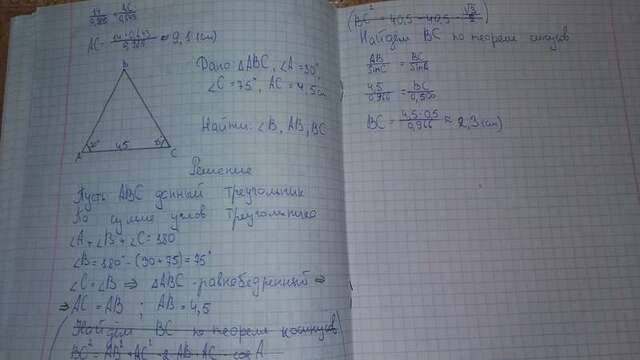 AC =
≈ 9,1 (см)
Дано: △ABC, ∠A = 30°
∠C = 75°, AC = 4,5 см
Найти: ∠B, AB, BC
B
A
30°
4,5
75°
C
Решение
Пусть ABC данный треугольник
По сумме углов треугольника
∠A + ∠B + ∠C = 180
∠B = 180° - (30 + 75) = 75°
∠C = ∠B ⇒ △ABC - равнобедренный ⇒
⇒ AC = AB ; AB = 4,5
(Найдём BC по теореме косинусов)
BC² = AB² + AC² - 2 · AB · AC · cos A
(BC² = 40,5 - 40,5 · √3/2)
Найдём BC по теореме синусов
AB/sin C = BC/sin A
4,5/0,966 = BC/0,500
BC = 4,5 · 0,5/0,966 ≈ 2,3 (см)